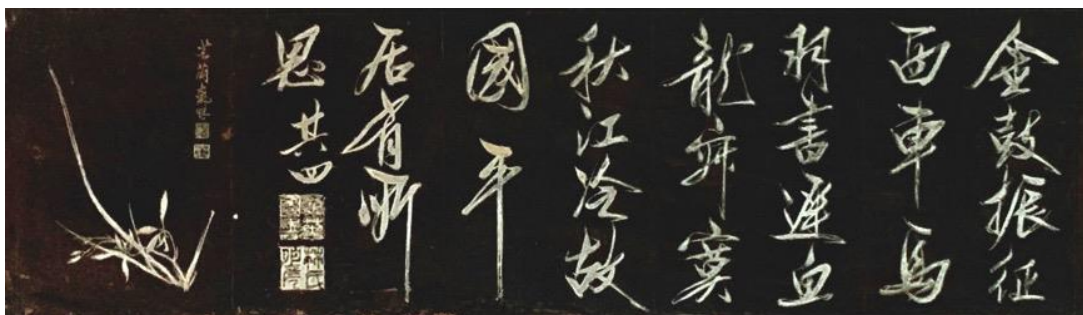 金鼓振征
西車馬
羽書遲魚
龍寂寞
秋江冷故
國平
居有所
思其四